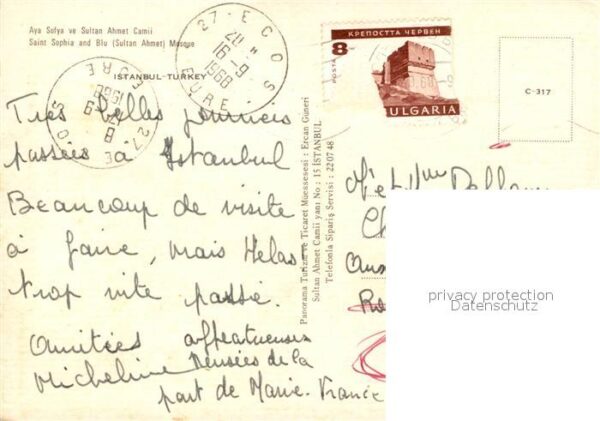 Aya Sofya ve Sultan Ahmet Camii
Saint Sophia and Blu (Sultan Ahmet) Mosque
ISTANBUL-TURKEY
27-ECOS
20 H
16-9
1968
EURE
27
ECOS
EURE
1968
8
КРЕПОСТТА ЧЕРВЕН
POSTA
BULGARIA
C-317
Très belles journées
passées à Istanbul
Beaucoup de visite
à faire, mais Helas
trop vite passé.
Amitiées affectueuses
Micheline Pensées de la
part de Marie-France
Panorama Turizm ve Ticaret Muessesesi : Ercan Güneri
Sultan Ahmet Camii yanı No : 15 İSTANBUL
Telefonla Sipariş Servisi : 22 07 48
M et Mme
privacy protection
Datenschutz